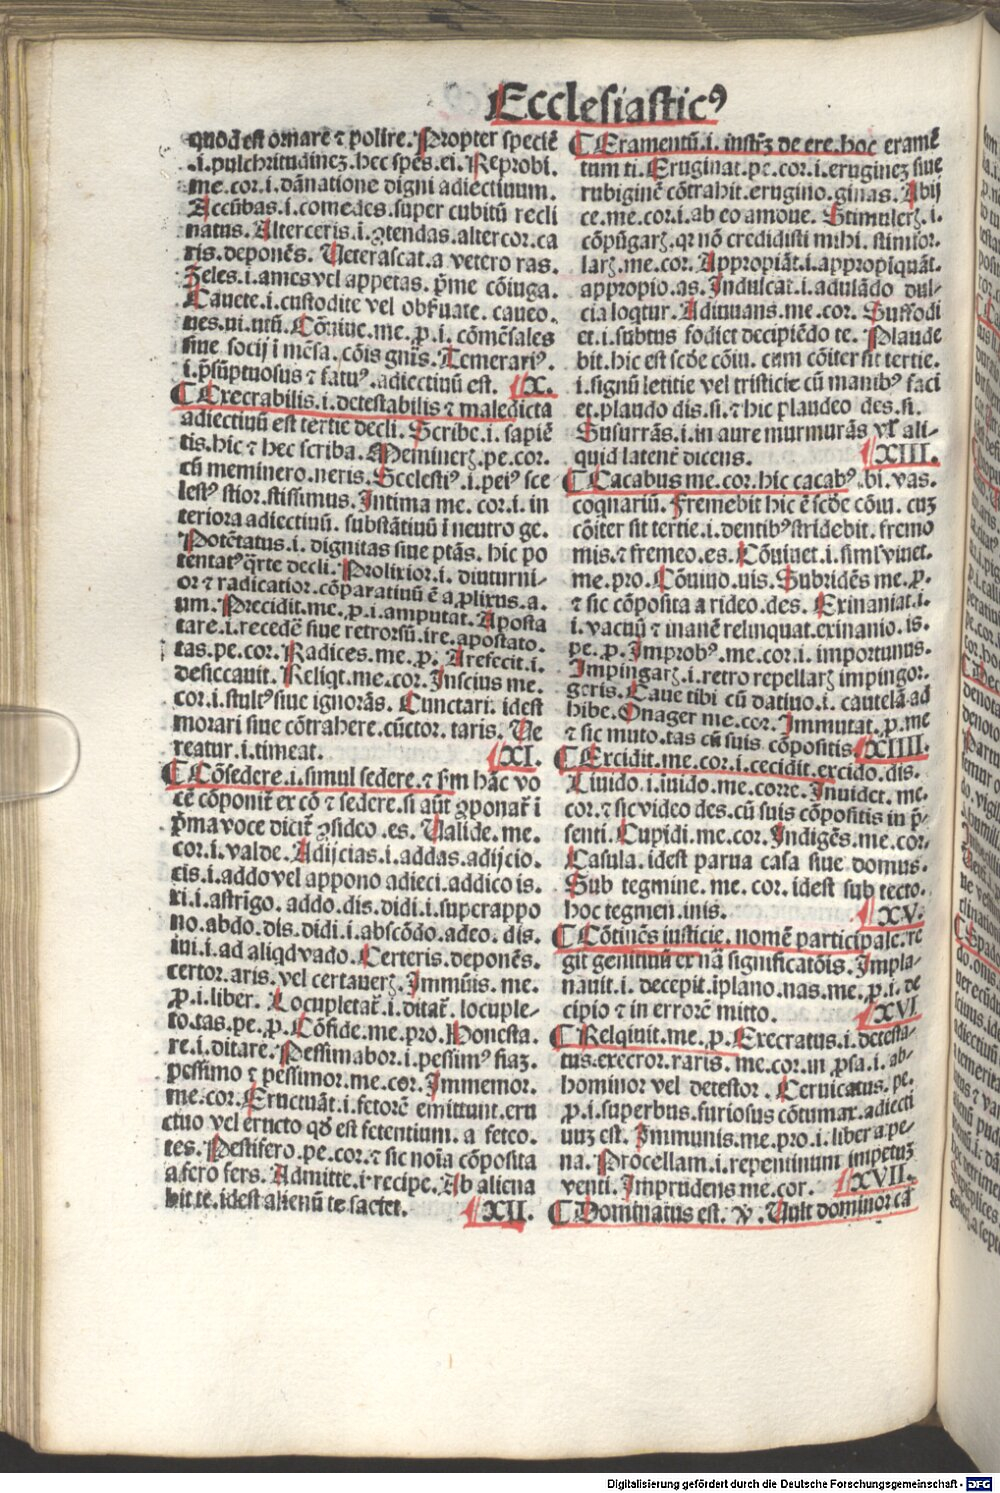 Ecclesiasticꝰ
quod est ornare ⁊ polire. Propter speciē
.i. pulchritudinez. hec spes. ei. Reprobi.
me. cor. i. dānatione digni adiectiuum.
Accūbas. i. comedes. super cubitū recli
natus. Alterceris. i. ꝯtendas. altercor. ca
ris. deponēs. Ueterascat. a vetero ras.
Zeles. i. ames vel appetas. p̄me cōiuga.
Cauete. i. custodite vel obs̄uate. caueo.
ues. ui. utū. Cōuiue. me. ꝓ. i. cōmēsales
siue socij i mēsa. cōis gn̄is. Temerariꝰ.
.i. p̄sūptuosus ⁊ fatuꝰ. adiectiuū est. X.
Execrabilis. i. detestabilis ⁊ maledicta
adiectiuū est tertie decli. Scribe. i. sapiē
tis. hic ⁊ hec scriba. Meminerꝫ. pe. cor.
cū meminero. neris. Scelestiꝰ. i. peiꝰ sce
lestꝰ stior. stissimus. Intima me. cor. i. in
teriora adiectiuū. substātiuū ī neutro ge.
Potētatus. i. dignitas siue ptās. hic po
tentatꝰ q̄rte decli. Prolixior. i. diuturni-
or ⁊ radicatior. cōparatiuū ē a ꝓlixus. a.
um. Precidit. me. ꝓ. i. amputat. Aposta
tare. i. recedē siue retrorsū. ire. apostato.
tas. pe. cor. Radices. me. ꝓ. Arefecit. i.
desiccauit. Reliqt. me. cor. Inscius me.
cor. i. stultꝰ siue ignorās. Cunctari. idest
morari siue cōtrahere. cūctor. taris. Ue
reatur. i. timeat. XI.
Cōsedere. i. simul sedere. ⁊ sm̄ hāc vo
cē cōponit᷑ ex cō ⁊ sedere. si aūt ꝯponat᷑ ī
p̄ma voce dicit᷑ ꝯsideo. es. Ualide. me.
cor. i. valde. Adijcias. i. addas. adijcio.
cis. i. addo vel appono adieci. addico is.
xi. i. astrīgo. addo. dis. didi. i. superappo
no. abdo. dis. didi. i. abscōdo. adeo. dis.
iui. i. ad aliqd vado. Certeris. deponēs.
certor. aris. vel certauerꝫ. Immūis. me.
ꝓ. i. liber. Locupletat᷑. i. ditat᷑. locuple-
to. tas. pe. ꝓ. Cōfide. me. pro. Honesta.
re. i. ditare. Pessimabor. i. pessimꝰ fiaz.
pessimo ⁊ pessimor. me. cor. Immemor.
me. cor. Eructuāt. i. fetorē emittunt. eru
ctuo vel eructo qd̄ est fetentium. a feteo.
tes. Pestifero. pe. cor. ⁊ sic noīa cōposita
a fero fers. Admitte. i. recipe. Ab aliena
bit te. idest alienū te faciet. XII.
Eramentū. i. instr̄ꝫ de ere. hoc eramē
tum ti. Eruginat. pe. cor. i. eruginez siue
rubiginē cōtrahit. erugino. ginas. Abij
ce. me. cor. i. ab eo amoue. Stimulerꝫ. i.
cōpūgarꝫ. qr nō credidisti mihi. stimlor.
larꝫ. me. cor. Appropiāt. i. appropīquāt.
appropio. as. Indulcat. i. adulādo dul-
cia loqtur. Adiuuans. me. cor. Suffodi
et. i. subtus fodiet decipiēdo te. Plaude
bit. hic est scōe cōiu. cum cōiter sit tertie.
.i. signū letitie vel tristicie cū manibꝰ faci
et. plaudo dis. si. ⁊ hic plaudeo des. si.
Susurrās. i. in aure murmurās vl̓ ali-
quid latentē dicens. XIII.
Cacabus me. cor. hic cacabꝰ. bi. vas.
coqnariū. Fremebit hic ē scōe cōiu. cuꝫ
cōiter sit tertie. i. dentibꝰ stridebit. fremo
mis. ⁊ fremeo. es. Cōuiuet. i. siml̓ viuet.
me. pro. Cōuiuo. uis. Subridēs me. ꝓ.
⁊ sic cōposita a rideo. des. Exinaniat. i.
i. vacuū ⁊ inanē relinquat. exinanio. is.
pe. ꝓ. Improbꝰ. me. cor. i. importunus.
Impingarꝫ. i. retro repellarꝫ impingor.
geris. Caue tibi cū datiuo. i. cautelā ad
hibe. Onager me. cor. Immutat. ꝓ. me
⁊ sic muto. tas cū suis cōpositis. XIIII.
Excidit. me. cor. i. cecidit. excido. dis.
Liuido. i. inuido. me. corre. Inuidet. me.
cor. ⁊ sic video des. cū suis cōpositis in p̄-
senti. Cupidi. me. cor. Indigēs. me. cor.
Casula. idest parua casa siue domus.
Sub tegmine. me. cor. idest sub tecto.
hoc tegmen. inis. XV.
Cōtinēs iusticie. nomē participale. re
git genitiuū ex nā significatōis. Impla-
nauit. i. decepit. īplano. nas. me. ꝓ. i. de
cipio ⁊ in errorē mitto. XVI.
Relqinit. me. ꝓ. Execratus. i. detesta-
tus. execror. raris. me. cor. in ꝓsa. i. ab-
hominor vel detestor. Ceruicatus. pe.
ꝓ. i. superbus. furiosus cōtumax. adiecti
uuꝫ est. Immunis. me. pro. i. liber a pe-
na. Procellam. i. repentinum impetuꝫ
venti. Imprudens me. cor. XVII.
Dominatus est. v̄. Uult dominor. ca᷑